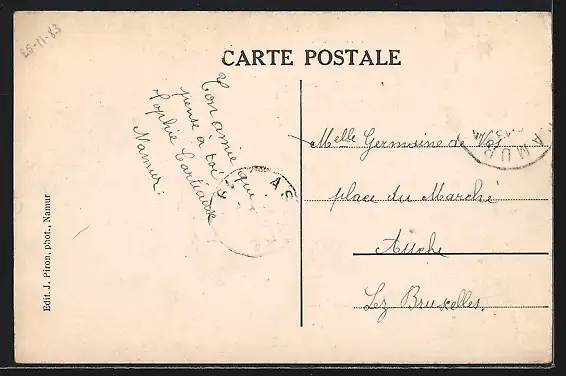 CARTE POSTALE
Ton amie qui
pense à toi
Sophie
Namur.
Melle Germaine de Vos
place du Marché
Lez Bruxelles.
AS
NAMUR
Edit. J. Piron, phot., Namur